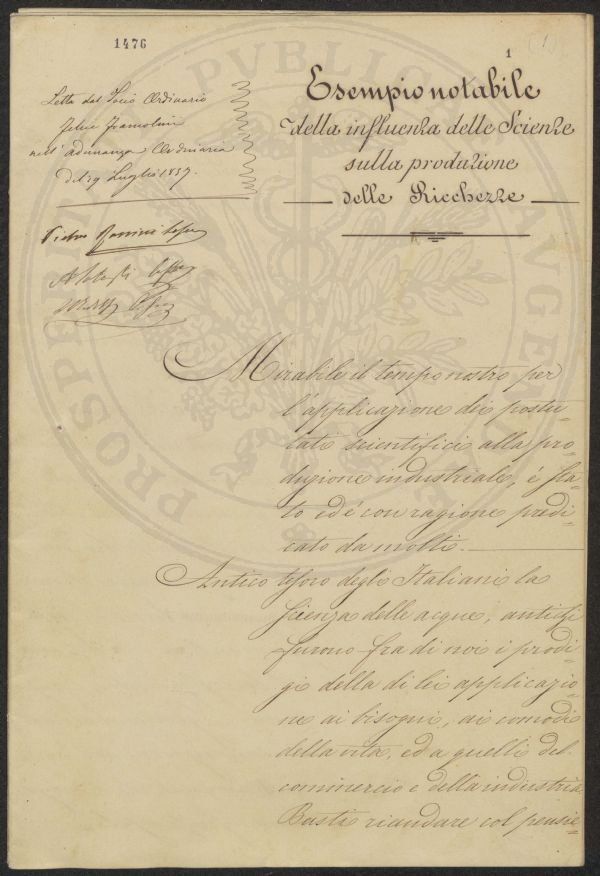 1476
(1)
1
Esempio notabile
della influenza delle Scienze
sulla produzione
delle Ricchezze
Letta dal Socio Ordinario
Felice
nell'adunanza Ordinaria
del 19 Luglio 1857.
Pietro
Mirabile il tempo nostro per
l'applicazione dei postu=
lati scientifici alla pro=
duzione industriale, é sta=
to ed é con ragione predi=
cato da molti.
Antico tesoro degli Italiani la
scienza delle acque, antichi
furono fra di noi i prodi=
gi della di lei applicazio=
ne ai bisogni, ai comodi
della vita, ed a quelli del
commercio e della industria
Basti riandare col pensie=
PUBLICAE
AUGENDAE
PROSPERITATI